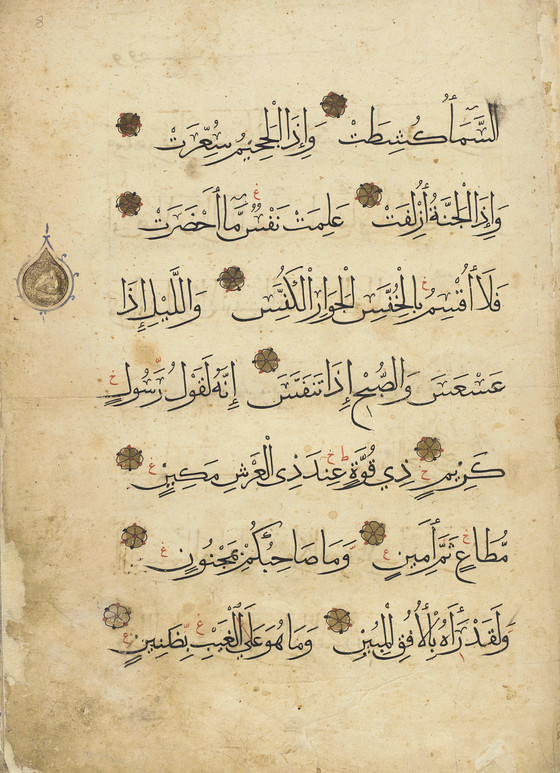 8
السَّمَاءُ كُشِطَتْ وَإِذَا الْجَحِيمُ سُعِّرَتْ
وَإِذَا الْجَنَّةُ أُزْلِفَتْ عَلِمَتْ نَفْسٌ مَّا أَحْضَرَتْ
فَلَا أُقْسِمُ بِالْخُنَّسِ الْجَوَارِ الْكُنَّسِ وَاللَّيْلِ إِذَا
عَسْعَسَ وَالصُّبْحِ إِذَا تَنَفَّسَ إِنَّهُ لَقَوْلُ رَسُولٍ
كَرِيمٍ ذِي قُوَّةٍ عِندَ ذِي الْعَرْشِ مَكِينٍ
مُّطَاعٍ ثَمَّ أَمِينٍ وَمَا صَاحِبُكُمْ بِمَجْنُونٍ
وَلَقَدْ رَآهُ بِالْأُفُقِ الْمُبِينِ وَمَا هُوَ عَلَى الْغَيْبِ بِظَنِينٍ